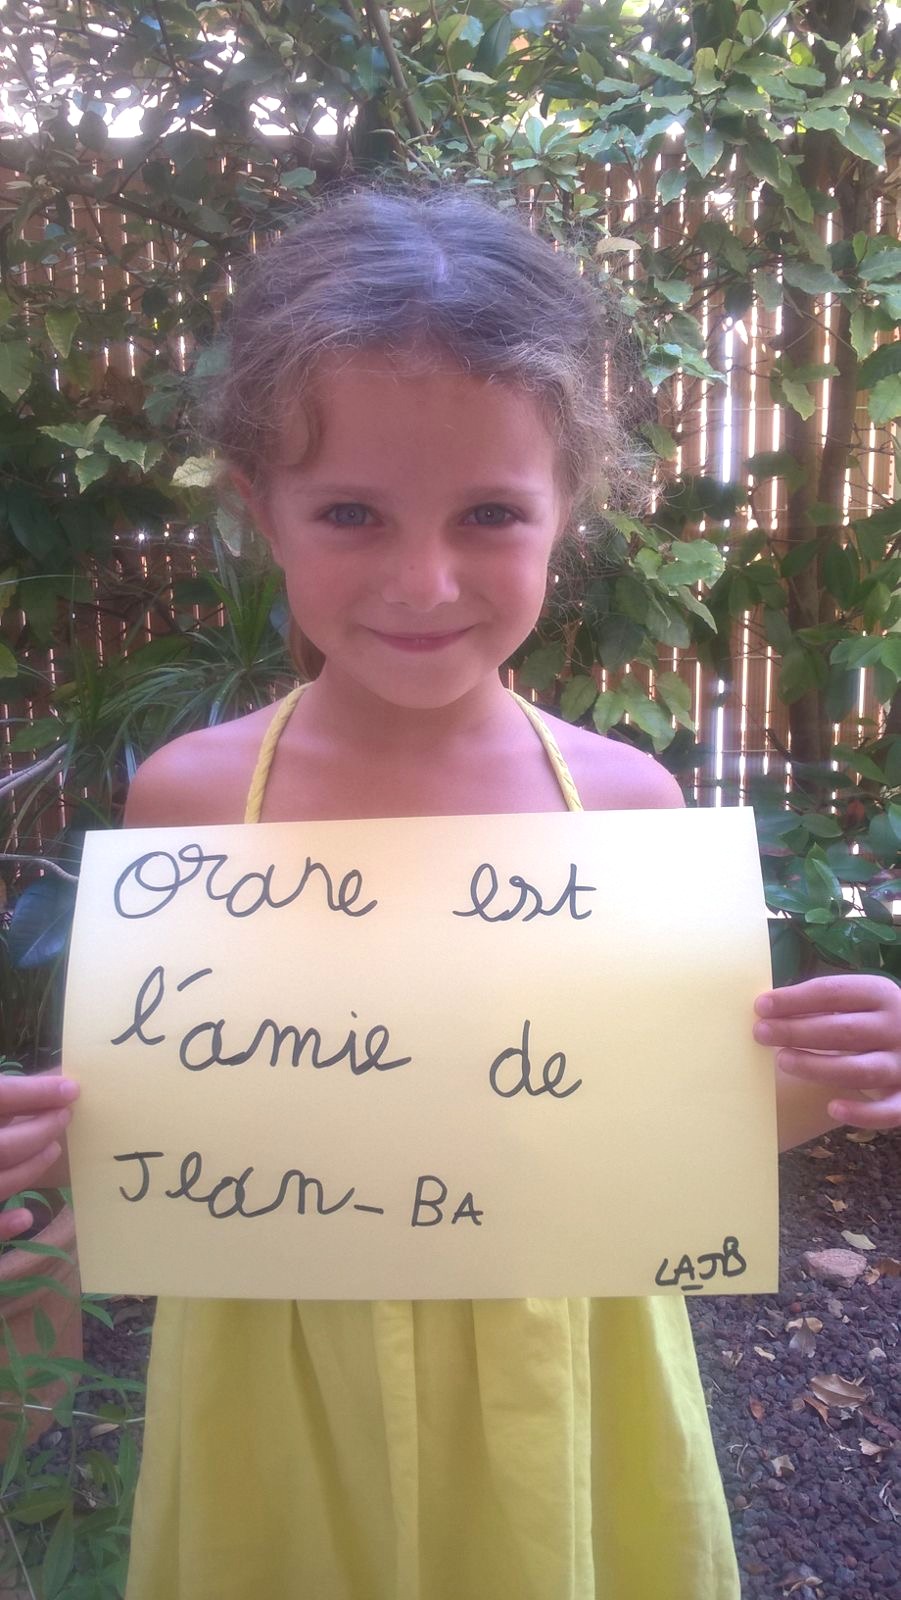 Orane est
l'amie de
Jean-BA
LAJB